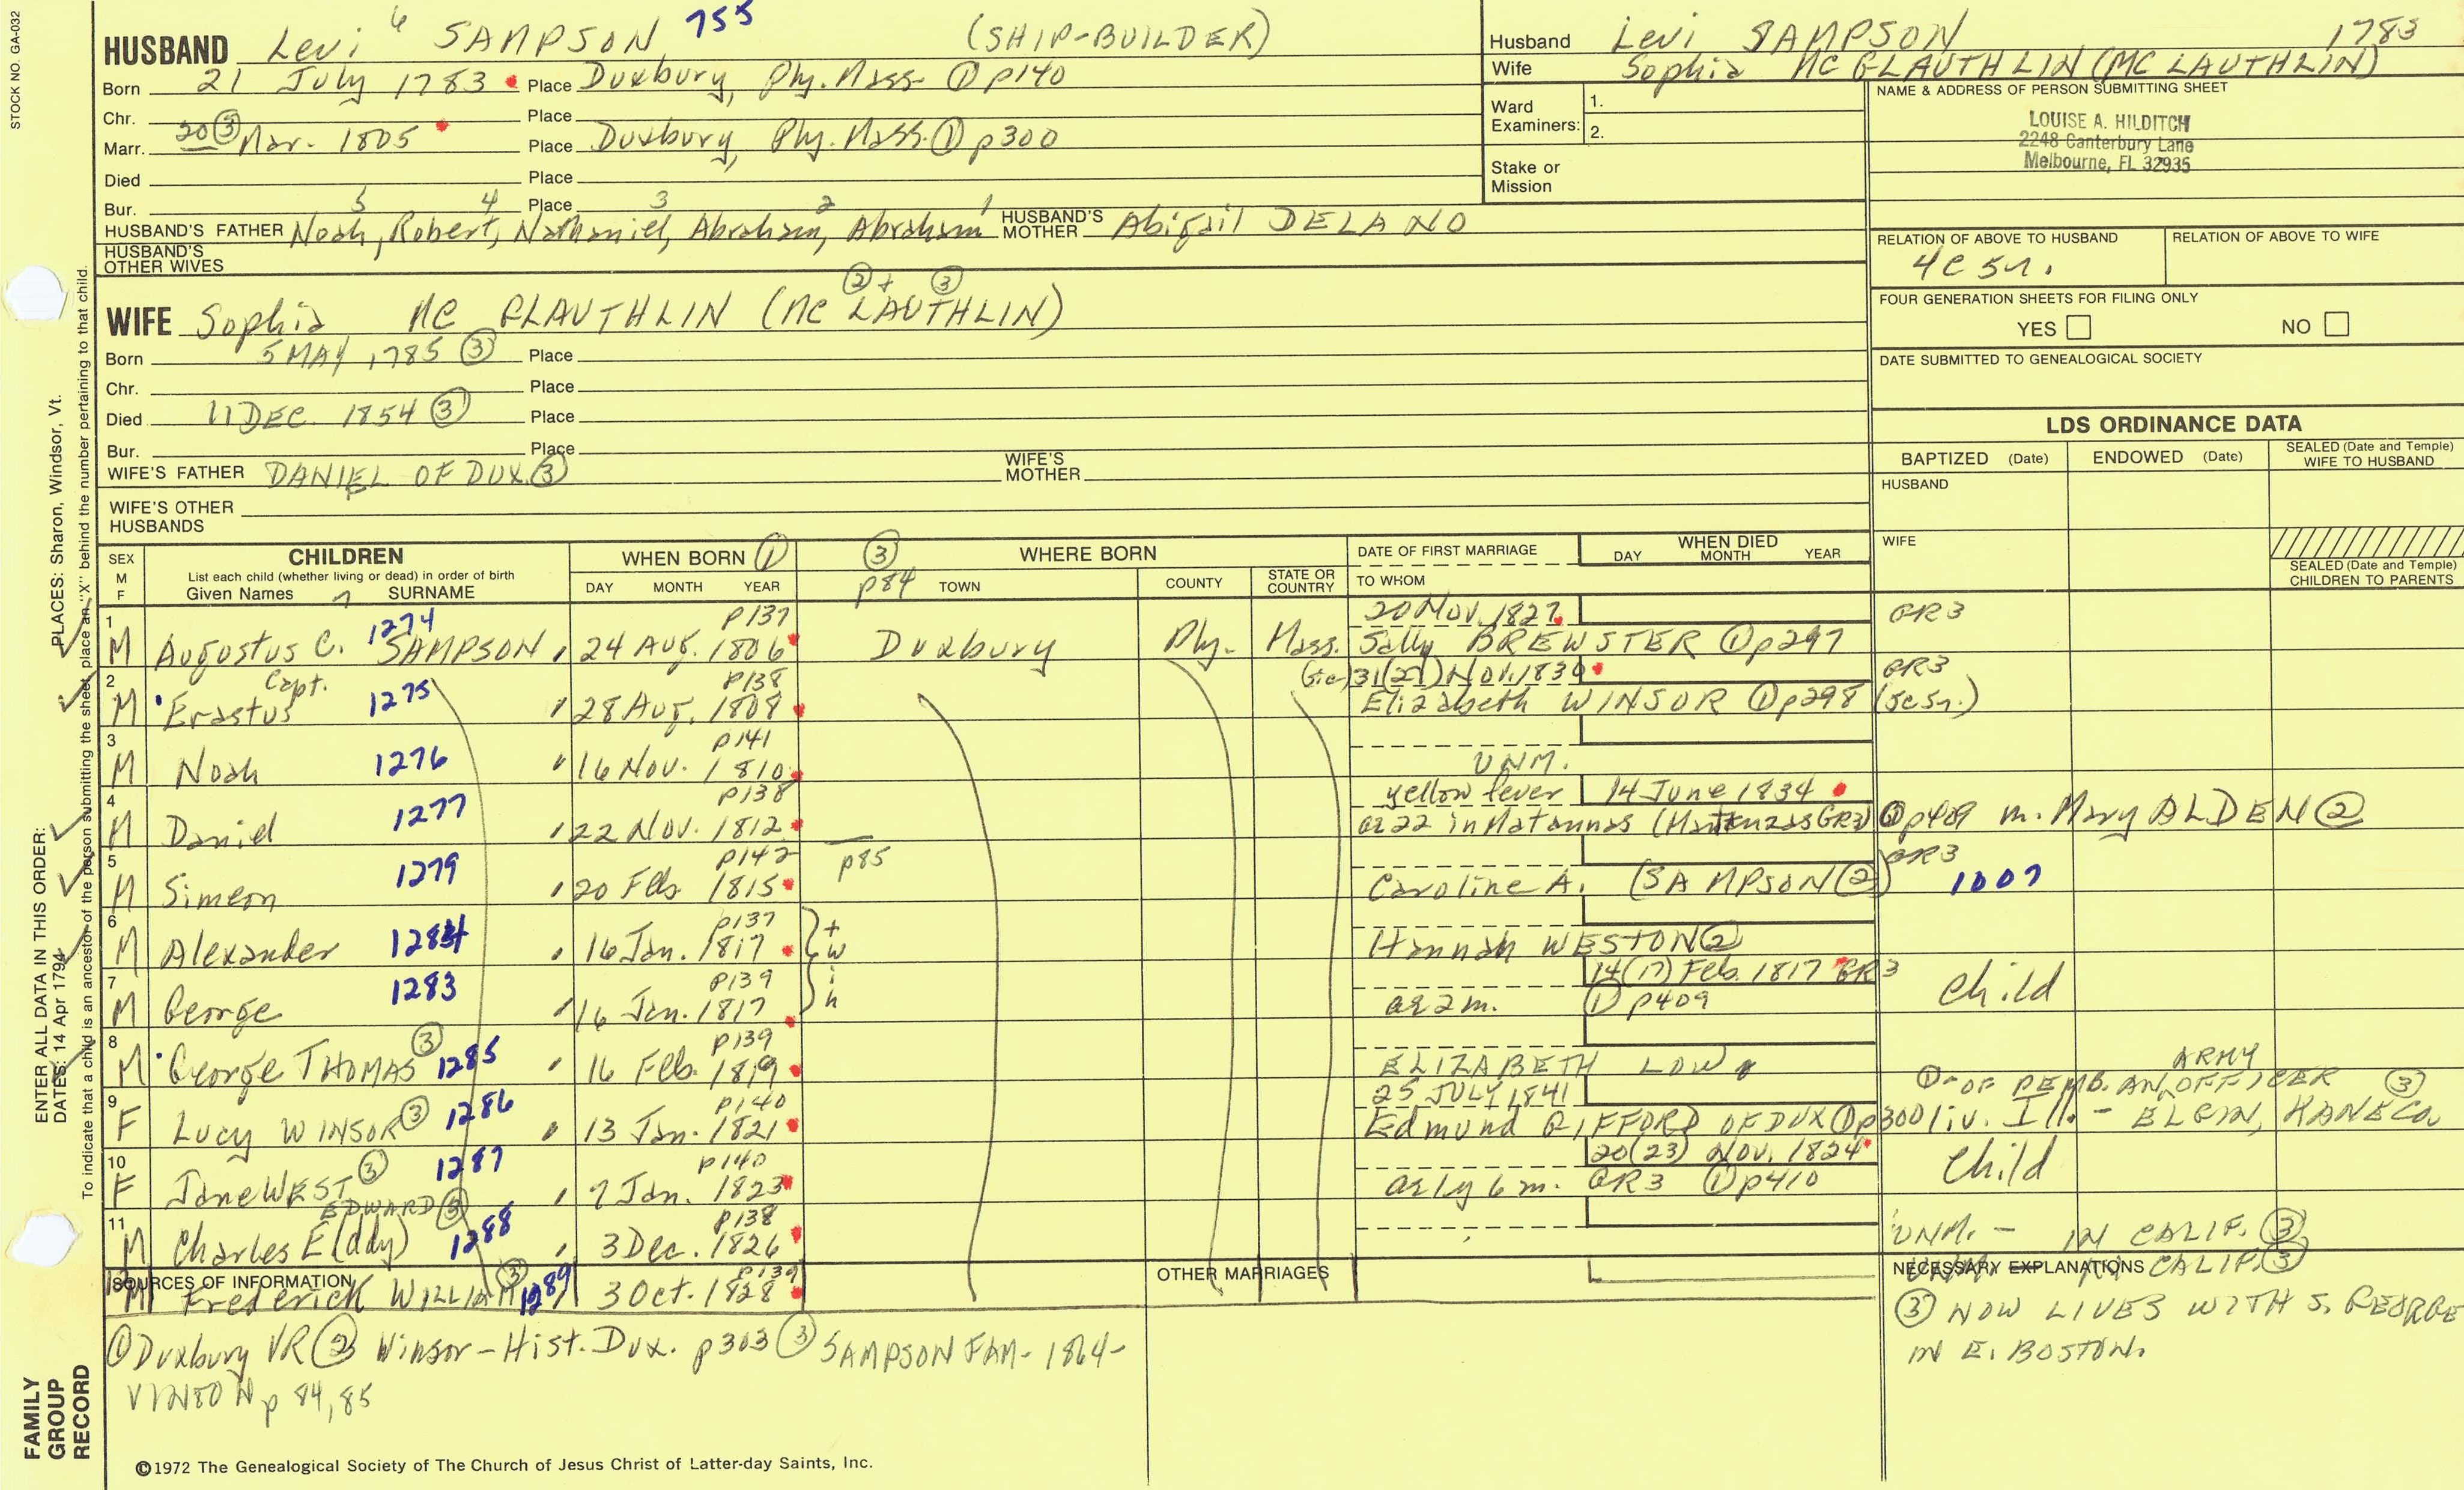 STOCK NO. GA-032
HUSBAND Levi 6 SAMPSON 755 (SHIP-BUILDER)
Born 21 July 1783 Place Duxbury, Ply. Mass. ① p140
Chr. Place
Marr. 20 ③ Mar. 1805 Place Duxbury, Ply. Mass. ① p300
Died Place
Bur. Place
5 4 3 2 1
HUSBAND'S FATHER Noah, Robert, Nathaniel, Abraham, Abraham HUSBAND'S MOTHER Abigail DELANO
HUSBAND'S OTHER WIVES
② + ③
WIFE Sophia Mc GLAUTHLIN (Mc LAUTHLIN)
Born 5 MAY 1785 ③ Place
Chr. Place
Died 11 DEC. 1854 ③ Place
Bur. Place
WIFE'S FATHER DANIEL OF DUX. ③ WIFE'S MOTHER
WIFE'S OTHER HUSBANDS
Husband Levi SAMPSON 1783
Wife Sophia Mc GLAUTHLIN (MC LAUTHLIN)
Ward Examiners: 1.
2.
Stake or Mission
NAME & ADDRESS OF PERSON SUBMITTING SHEET
LOUISE A. HILDITCH
2248 Canterbury Lane
Melbourne, FL 32935
RELATION OF ABOVE TO HUSBAND RELATION OF ABOVE TO WIFE
4c5r.
FOUR GENERATION SHEETS FOR FILING ONLY
YES NO
DATE SUBMITTED TO GENEALOGICAL SOCIETY
LDS ORDINANCE DATA
BAPTIZED (Date) ENDOWED (Date) SEALED (Date and Temple) WIFE TO HUSBAND
HUSBAND
WIFE
SEALED (Date and Temple) CHILDREN TO PARENTS
SEX M F CHILDREN WHEN BORN ① ③ WHERE BORN DATE OF FIRST MARRIAGE WHEN DIED DAY MONTH YEAR
List each child (whether living or dead) in order of birth
Given Names 7 SURNAME DAY MONTH YEAR p84 TOWN COUNTY STATE OR COUNTRY TO WHOM
1 1274 p137 20 Nov. 1827 GR3
M Augustus C. SAMPSON 24 Aug. 1806 Duxbury Ply. Mass. Sally BREWSTER ① p297
2 Capt. 1275 p138 31(21) Nov. 1830 GR3
M Erastus 28 Aug. 1808 Elizabeth WINSOR ① p298 (5c5r.)
3 1276 p141
M Noah 16 Nov. 1810 UNM.
4 1277 p138 yellow fever 14 June 1834
M Daniel 22 Nov. 1812 ae 22 in Matannas (Mantenzas GR3) ① p409 m. Mary ALDEN ②
5 1279 p142 p85 GR3
M Simeon 20 Feb. 1815 Caroline A. (SAMPSON ②) 1007
6 1284 p137
M Alexander 16 Jan. 1817 twin Hannah WESTON ②
7 1283 p139 14(17) Feb. 1817 GR3
M George 16 Jan. 1817 ae 2m. ① p409 child
8 ③ 1285 p139
M George THOMAS 16 Feb. 1819 ELIZABETH LOW
ARMY
OF PEMB. AN OFFICER ③
9 ③ 1286 p140 25 JULY 1841
F Lucy WINSOR 13 Jan. 1821 Edmund GIFFORD OF DUX ① p300 liv. Ill. - ELGIN, KANE CO.
10 ③ 1287 p140 20(23) Nov. 1824
F Jane WEST 7 Jan. 1823 ae 1y 6m. GR3 ① p410 child
11 EDWARD ③ 1288 p138
M Charles E(ddy) 3 Dec. 1826 UNM. - IN CALIF. ③
SOURCES OF INFORMATION OTHER MARRIAGES NECESSARY EXPLANATIONS
12 M Frederick WILLIAM ③ 1289 p139 3 Oct. 1828 UNM. IN CALIF. ③
① Duxbury VR ② Winsor - Hist. Dux. p303 ③ SAMPSON FAM - 1864 -
VINTON p 84, 85
③ NOW LIVES WITH S. GEORGE
IN E. BOSTON.
©1972 The Genealogical Society of The Church of Jesus Christ of Latter-day Saints, Inc.
FAMILY GROUP RECORD
ENTER ALL DATA IN THIS ORDER: PLACES: Sharon, Windsor, Vt.
DATES: 14 Apr 1794
To indicate that a child is an ancestor of the person submitting the sheet, place an "X" behind the number pertaining to that child.